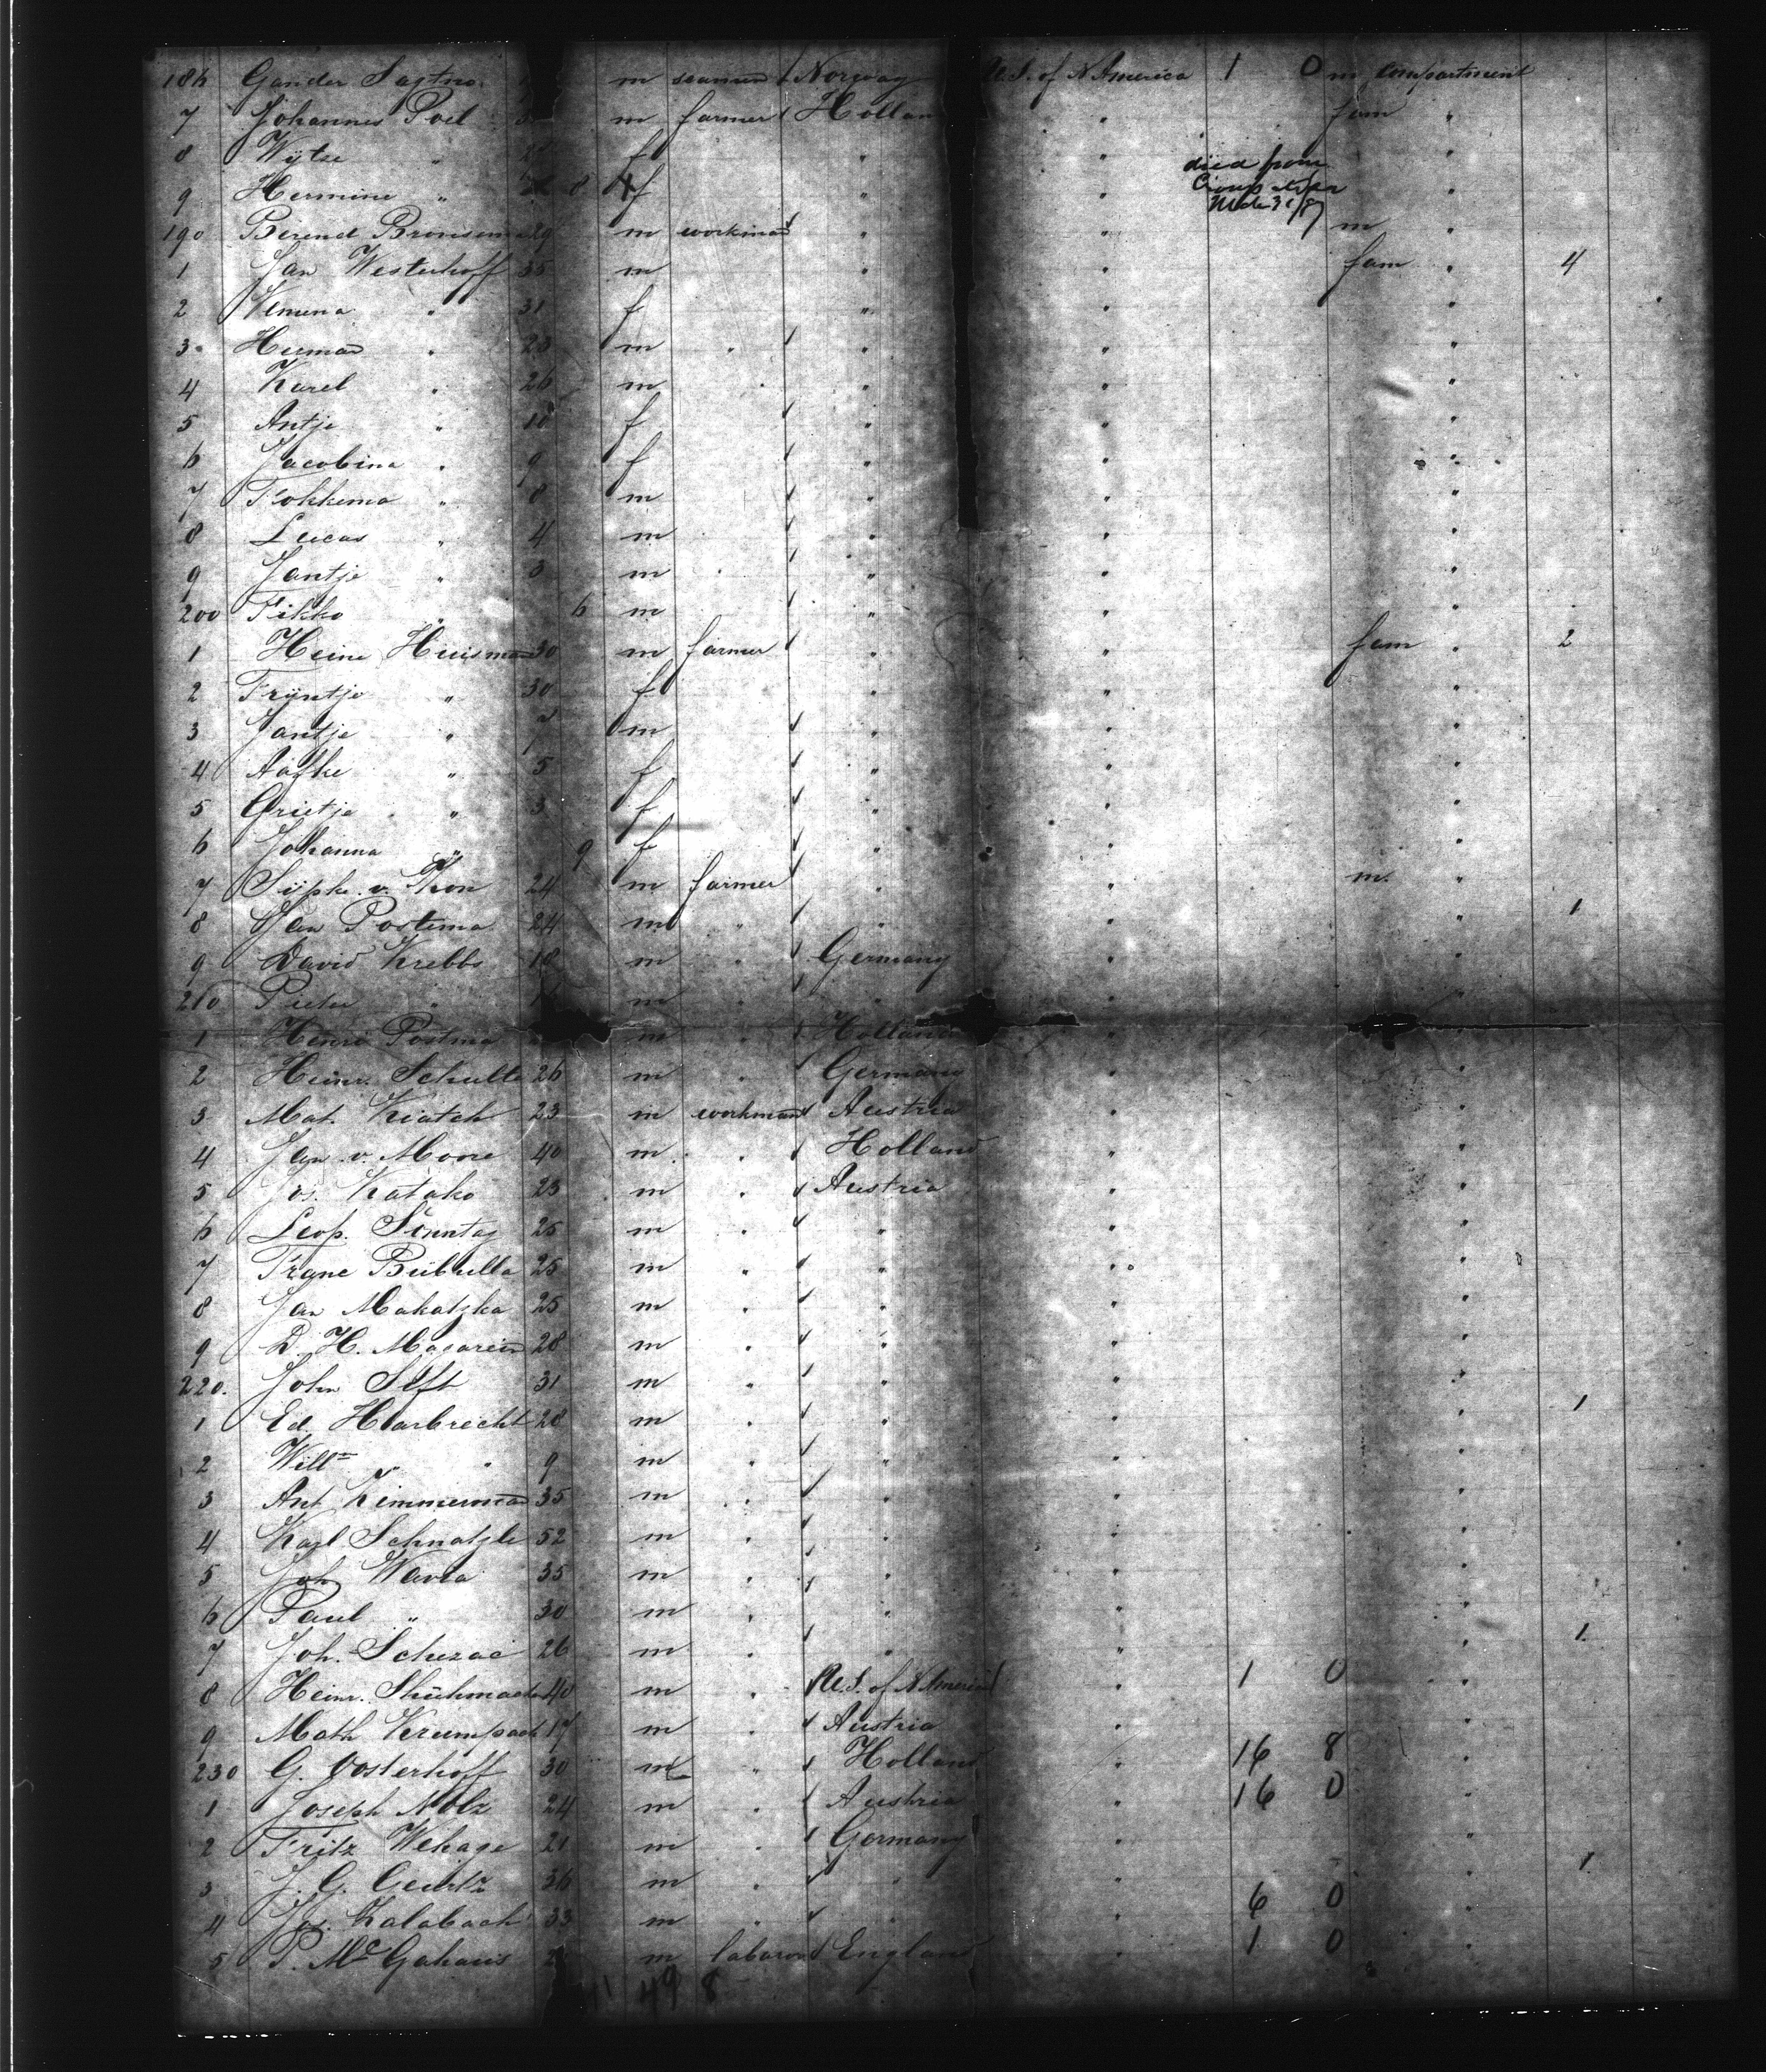 186 Gander m seaman Norway U.S. of N America 1 0 m compartment
7 Johannes Poel m farmer Hollan " fam "
8 Wytze " f " " "
9 Hermine " 8 f " " died from Croup "
190 Berend Bronsema 29 m workman " " m
1 Jan Westerhoff 35 m " " fam " 4
2 " 31 f " " "
3 Herman " 23 m " " " "
4 Karel " 26 m " " " "
5 Antje " 18 f " " "
6 Jacobina " 9 f " " "
7 Fokkema " 8 m " " "
8 Lucas " 4 m " " "
9 Jantje " 3 m " " " "
200 Fikko " 6 m " " "
1 Heine Huisman 30 m farmer " " fam " 2
2 Trijntje " 30 f " " "
3 Jantje " 7 m " " "
4 Aafke " 5 f " " "
5 Grietje " 3 f " " "
6 Johanna " 9 f " " "
7 Sijpke v. 24 m farmer " " m. "
8 Jan Postema 24 m " " " " 1
9 David Krebbs 18 m " Germany " "
210 Pieter " m " " " "
1 Henri Postma m " Holland " "
2 Heinr. Schulte 26 m " Germany " "
3 Mat. Kratch 23 m workman Austria " "
4 Jan v. Moore 40 m " Holland " "
5 Jos. Katako 23 m " Austria " "
6 Leop. Sonntag 25 m " " " "
7 Franc 25 m " " " "
8 Jan Makatzka 25 m " " " "
9 D. H. 28 m " " " "
220. John 31 m " " " "
1 Ed. Harbrecht 28 m " " " " 1
2 Willm " 9 m " " " "
3 Ant Zimmerman 35 m " " " "
4 Karl Schnatzle 52 m " " " "
5 Joh Wavra 35 m " " " "
6 Paul " 30 m " " " "
7 Joh. 26 m " " " " 1
8 Heinr. 40 m " U.S. of N America " 1 0 "
9 Math 17 m " Austria " "
230 G. Oosterhoff 30 m " Holland " 16 8 "
1 Joseph Nolz 24 m " Austria " 16 0 "
2 Fritz Wehage 21 m " Germany " "
3 J. G. 36 m " " " " 1
4 Jos. Kalabach 33 m " " " 6 0 "
5 P. Mc Gahans m labourer England " 1 0 "
49 8